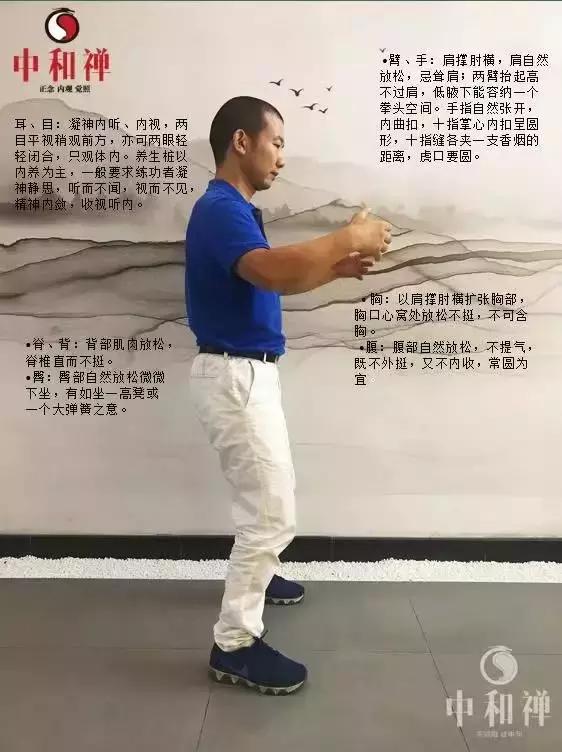 中和禅
正念 内观 觉照
耳、目：凝神内听、内视，两
目平视稍观前方，亦可两眼轻
轻闭合，只观体内。养生桩以
内养为主，一般要求练功者凝
神静思，听而不闻，视而不见，
精神内敛，收视听内。
•臂、手：肩撑肘横，肩自然
放松，忌耸肩；两臂抬起高
不过肩，低腋下能容纳一个
拳头空间。手指自然张开，
内曲扣，十指掌心内扣呈圆
形，十指缝各夹一支香烟的
距离，虎口要圆。
•脊、背：背部肌肉放松，
脊椎直而不挺。
•臀：臀部自然放松微微
下坐，有如坐一高凳或
一个大弹簧之意。
•胸：以肩撑肘横扩张胸部，
胸口心窝处放松不挺，不可含
胸。
•腹：腹部自然放松，不提气，
既不外挺，又不内收，常圆为
宜。
中和禅